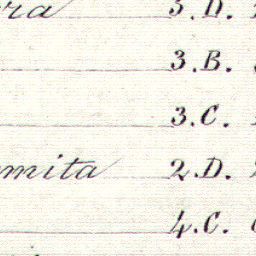 ra 3.D.
3.B.
3.C.
mita 2.D.
4.C.